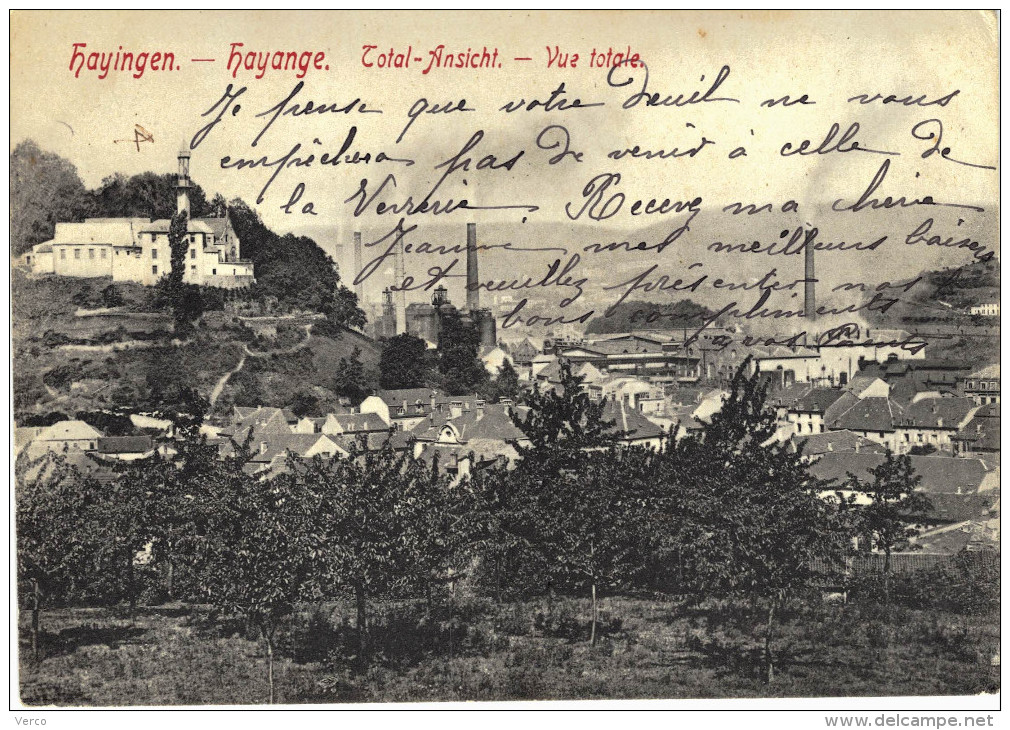 Hayingen. — Hayange. Total-Ansicht. — Vue totale.
Je pense que votre deuil ne vous
empêchera pas de venir à celle de
la Verrerie Recevez ma chérie
Jeannine mes meilleurs baisers
et veuillez présenter nos
bons compliments
à vos Parents
Verco
www.delcampe.net